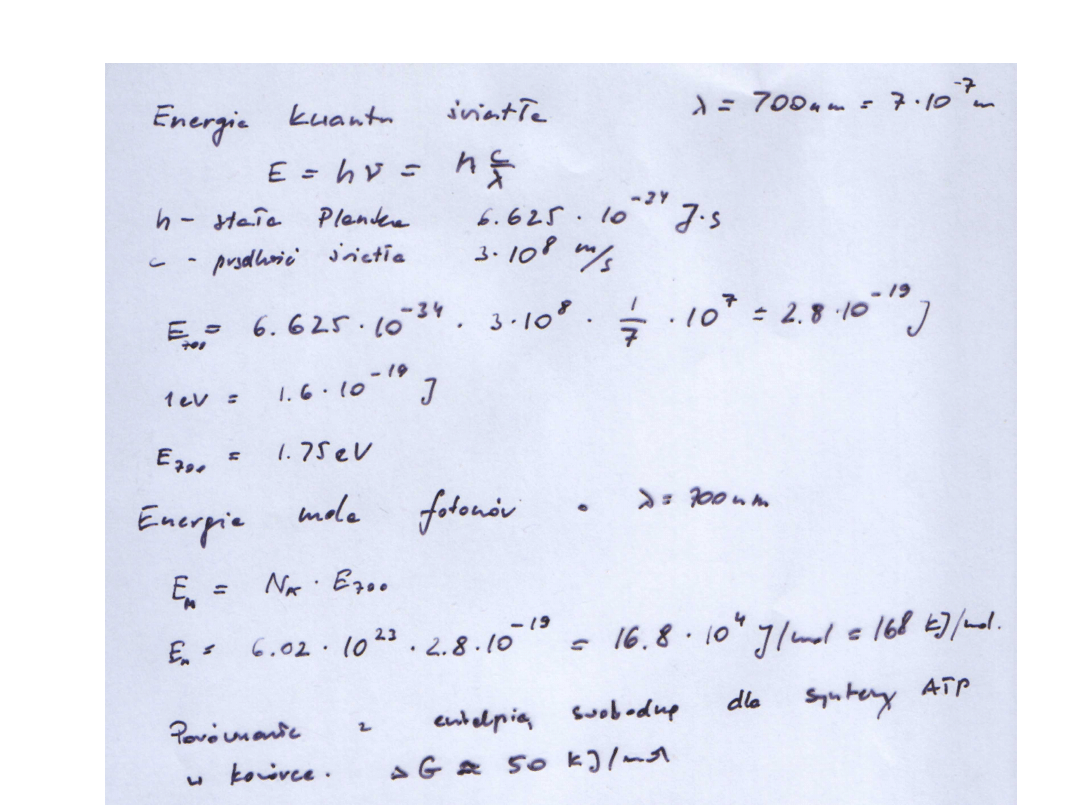 Energia kwantu światła λ = 700nm = 7·10⁻⁷m
E = hν = h c/λ
h - stała Plancka 6.625 · 10⁻³⁴ J·s
c - prędkość światła 3·10⁸ m/s
E₇₀₀ = 6.625·10⁻³⁴ · 3·10⁸ · 1/7 · 10⁷ = 2.8·10⁻¹⁹ J
1eV = 1.6·10⁻¹⁹ J
E₇₀₀ = 1.75eV
Energia mola fotonów o λ = 700nm
Eₘ = N_A · E₇₀₀
Eₘ = 6.02·10²³ · 2.8·10⁻¹⁹ = 16.8·10⁴ J/mol = 168 kJ/mol.
Porównanie z entalpią swobodną dla syntezy ATP
w komórce. ΔG ≈ 50 kJ/mol